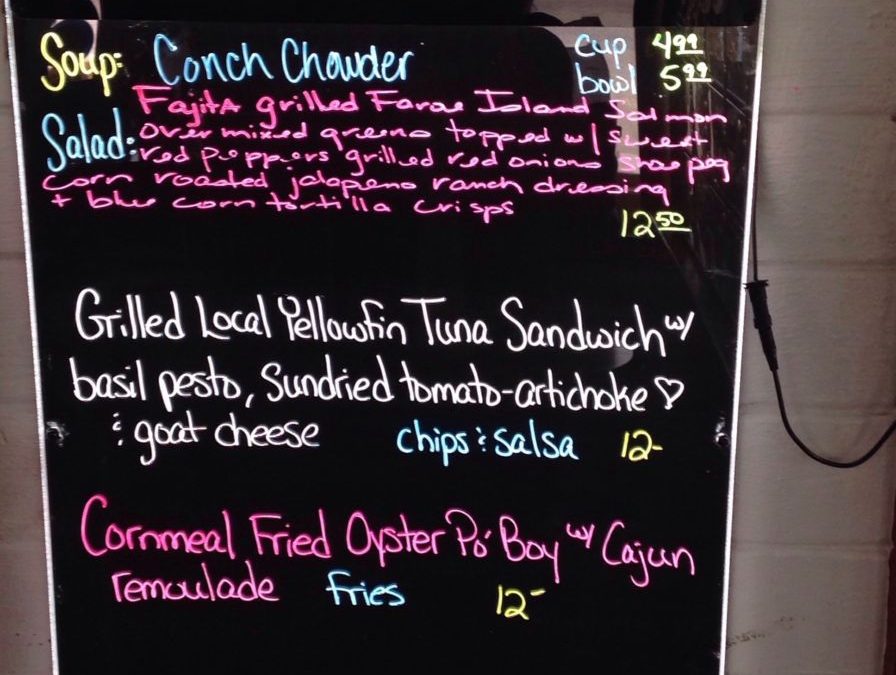 Soup: Conch Chowder cup 4.99
bowl 5.99
Fajita grilled Faroe Island Salmon
Salad: over mixed greens topped w/ sweet
red peppers grilled red onions shoe peg
corn roasted jalapeno ranch dressing
+ blue corn tortilla crisps
12.50
Grilled Local Yellowfin Tuna Sandwich w/
basil pesto, Sundried tomato-artichoke ♡
& goat cheese chips & salsa 12-
Cornmeal Fried Oyster Po' Boy w/ Cajun
remoulade fries 12-